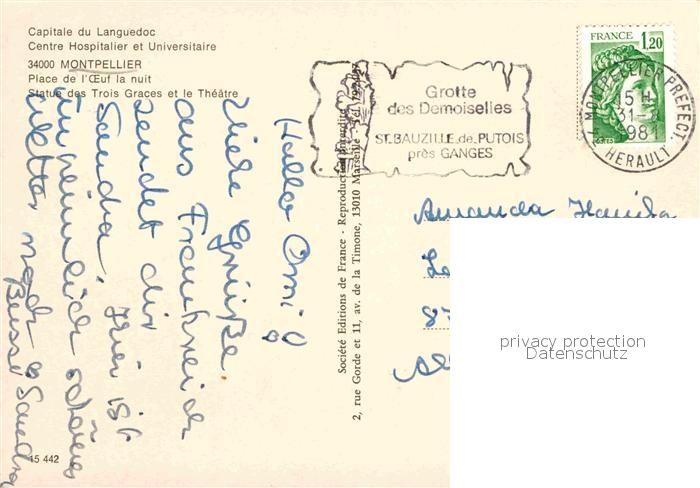 Capitale du Languedoc
Centre Hospitalier et Universitaire
34000 MONTPELLIER
Place de l'Œuf la nuit
Statue des Trois Graces et le Théâtre
Grotte
des Demoiselles
ST.BAUZILLE.de.PUTOIS
près GANGES
FRANCE 1,20
34 MONTPELLIER PREFECT.
15 H
31-
1981
HERAULT
Hallo Omi!
Viele Grüße
aus Frankreich
sendet dir
Sandra. Hier ist
ein ziemlich schönes
Wetter
Sandra
Société Editions de France - Reproduction interdite
2, rue Gorde et 11, av. de la Timone, 13010 Marseille - Tél.
Amanda
privacy protection
Datenschutz
15 442